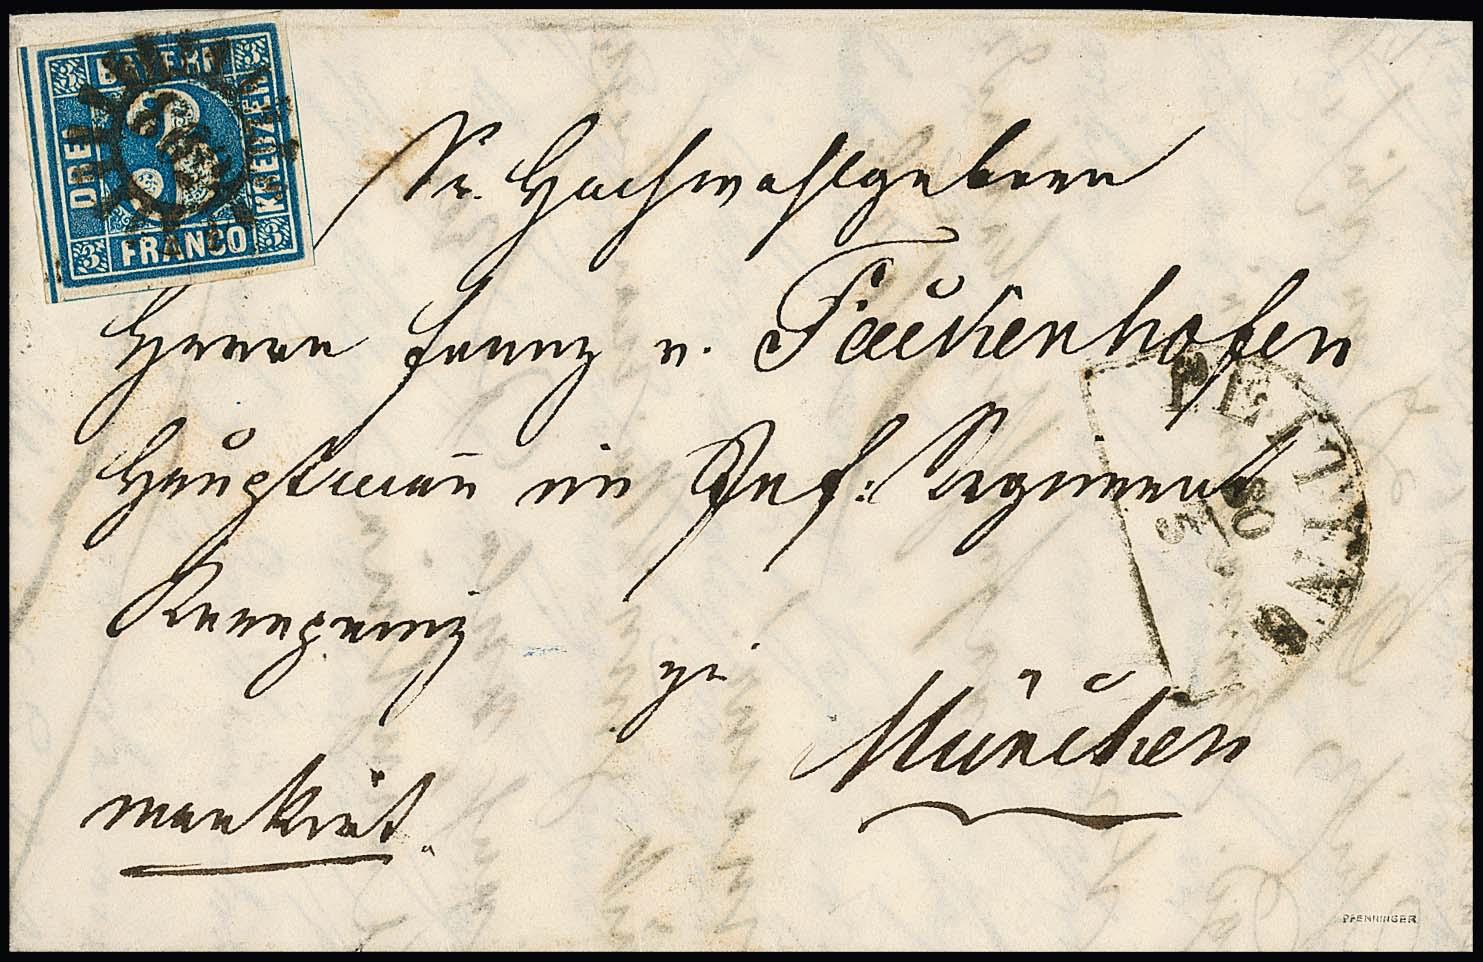 BAYERN
DREI
KREUZER
3 3 3 3
FRANCO
Sr. Hochwohlgeboren
Herrn Franz v. Fackenhofen
Hauptmann im Inf: Regiment
Kronprinz
zu
München
markirt.
PEITING
5
PFENNINGER